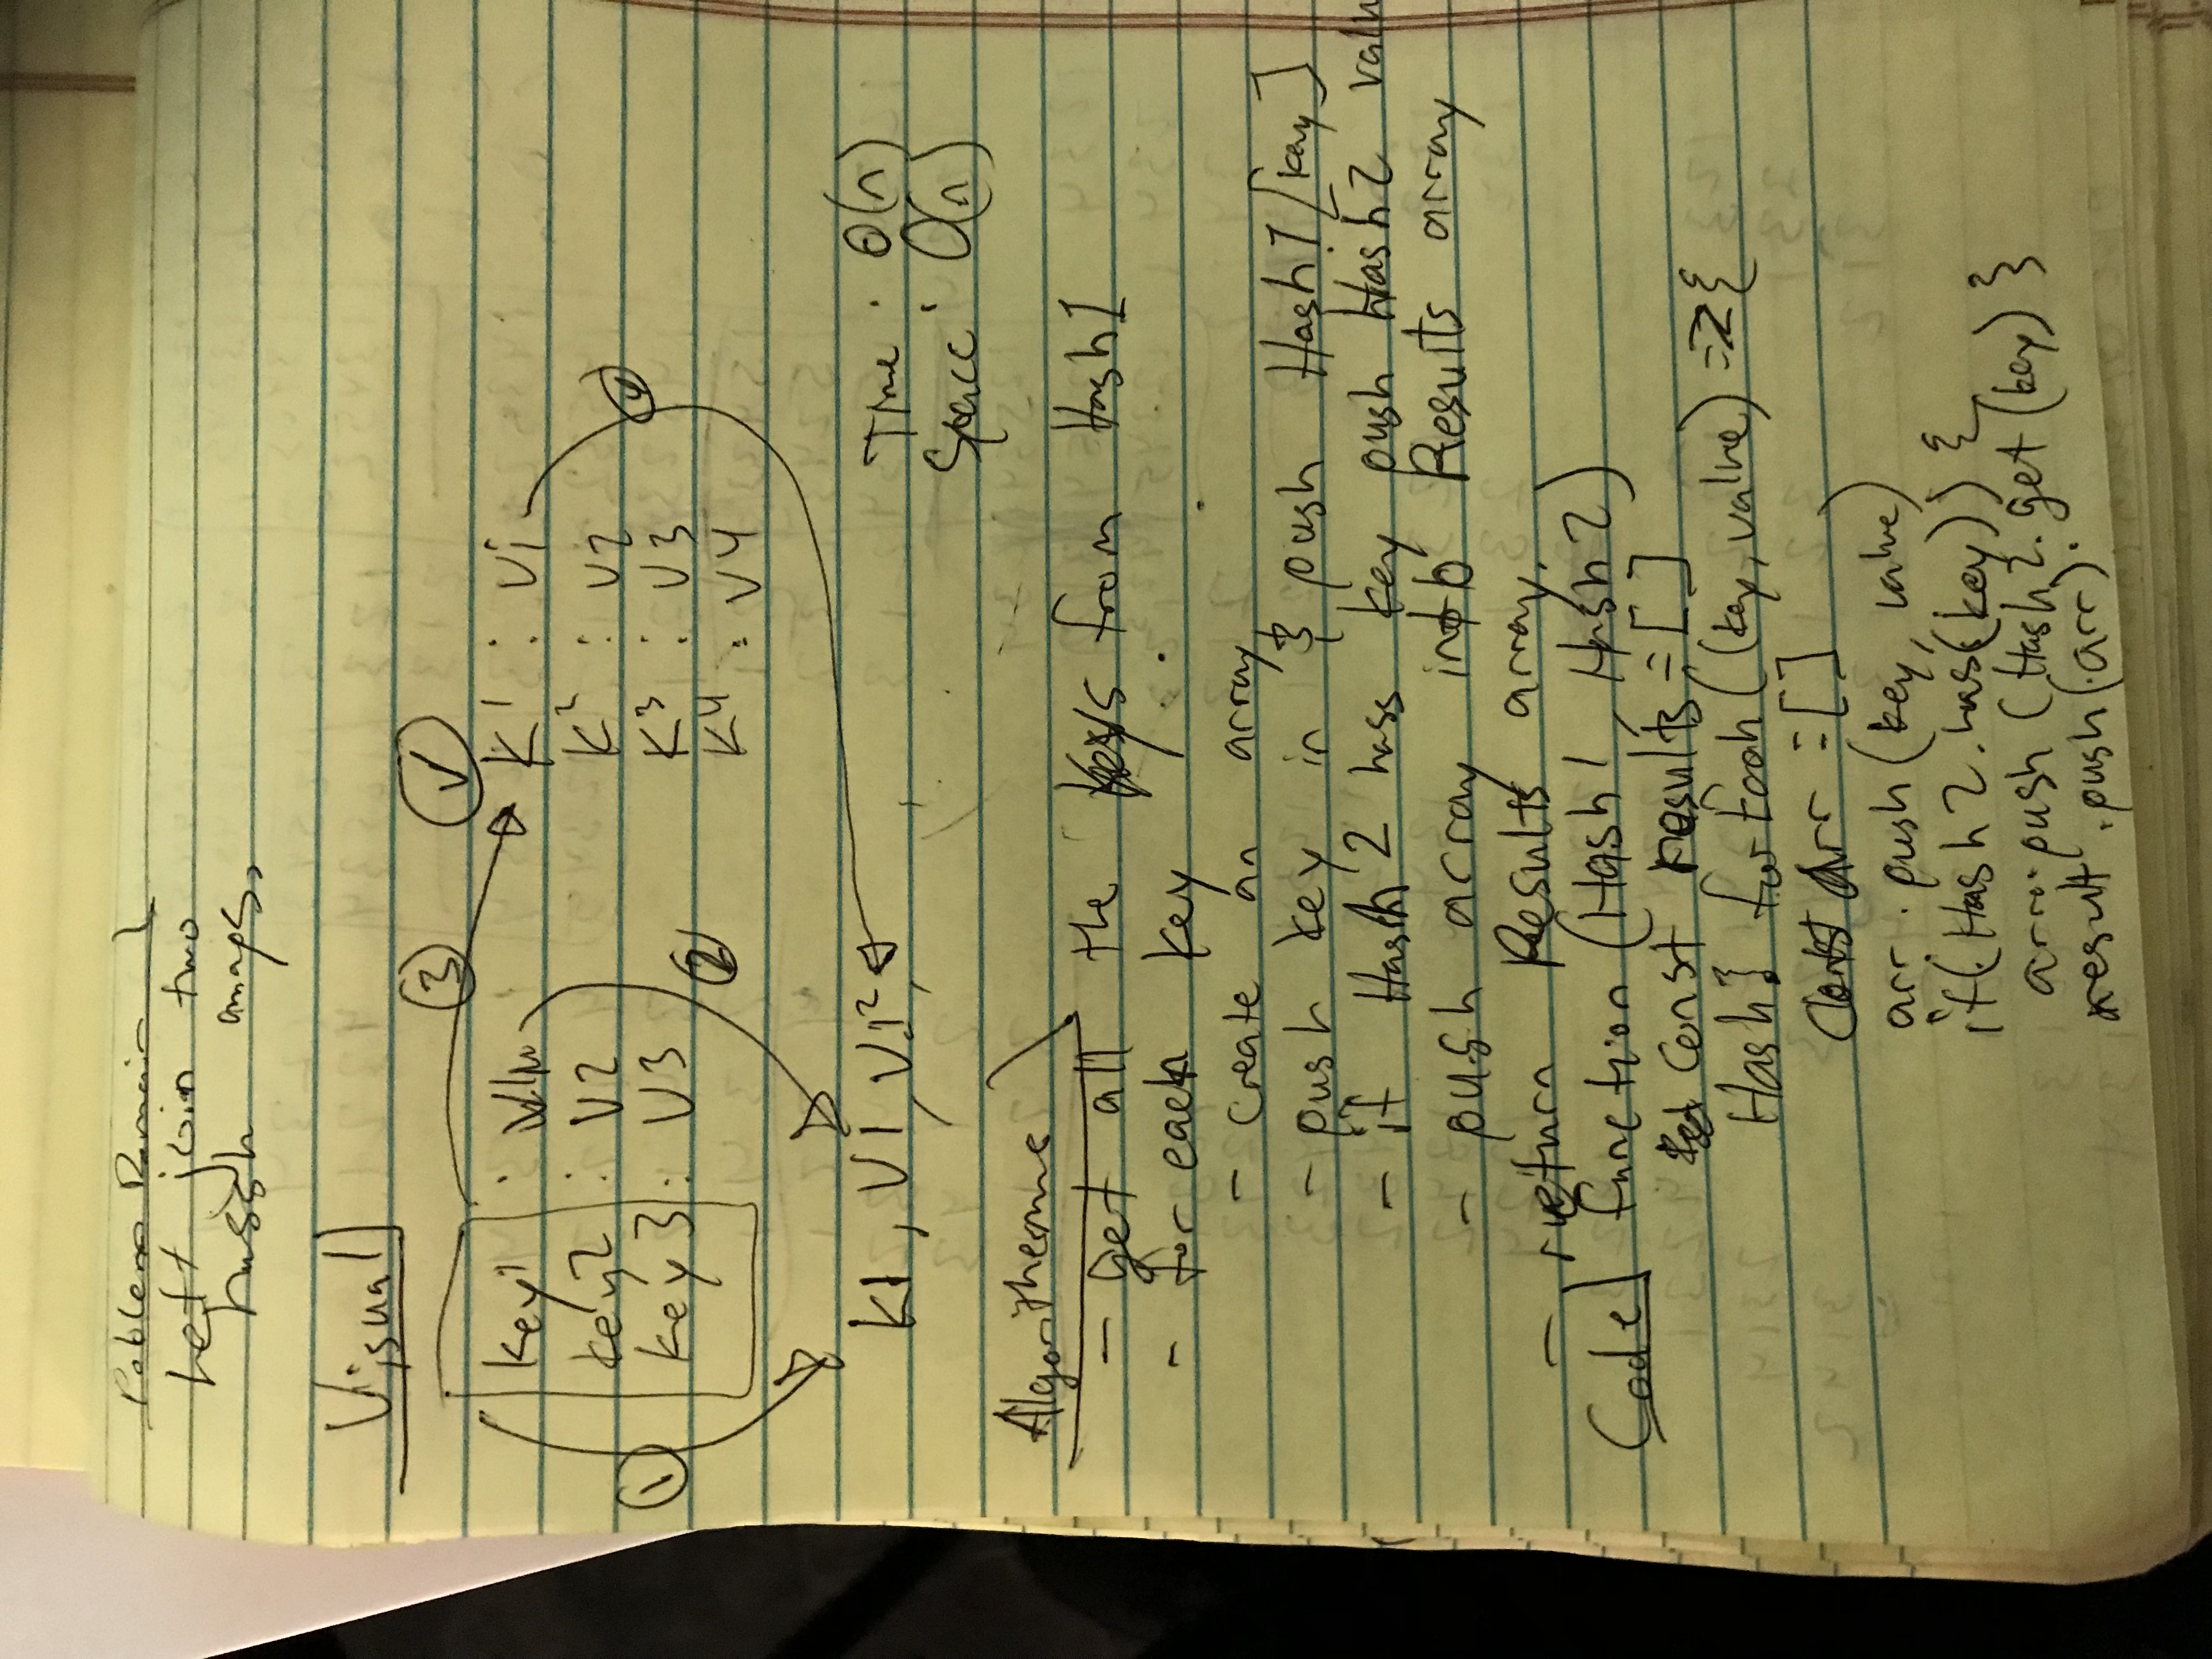 Problem Domain
Left join two
hassh maps,
Visual
3 ✓
key1 : K1 : V1
key2 : V2 K2 : V2
key3 : V3 K3 : V3
K4 : V4
1 2 4
K1, V1, V1²,
Time : O(n)
Space : O(n)
Algorithemms
- get all the keys from Hash1
- for each key
- create an array
- push key in & push Hash1[key]
- if Hash2 hass key push Hash2 valu
- push array into Results array
- return Results array.
Code function (Hash1, Hash2)
const results = []
Hash1 forEach((key, value) => {
const Arr = []
arr . push(key, value)
if(Hash2.has(key)) {
arr.push (Hash2.get(key) }
result .push(arr).